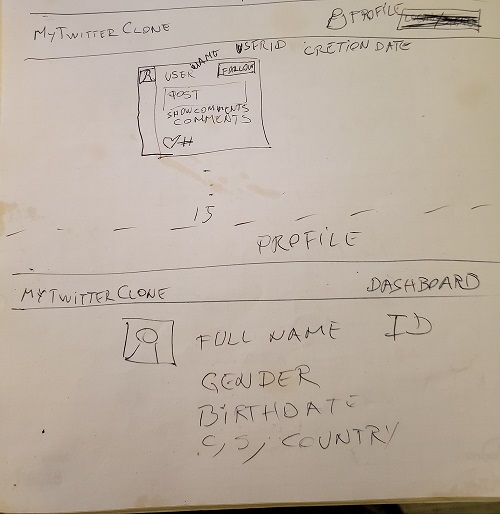 MYTWITTER CLONE PROFILE
USER NAME USERID CRETION DATE
FOLLOW
POST
SHOW COMMENTS
COMMENTS
#
15
PROFILE
MYTWITTER CLONE DASHBOARD
FULL NAME ID
GENDER
BIRTHDATE
C, S, COUNTRY